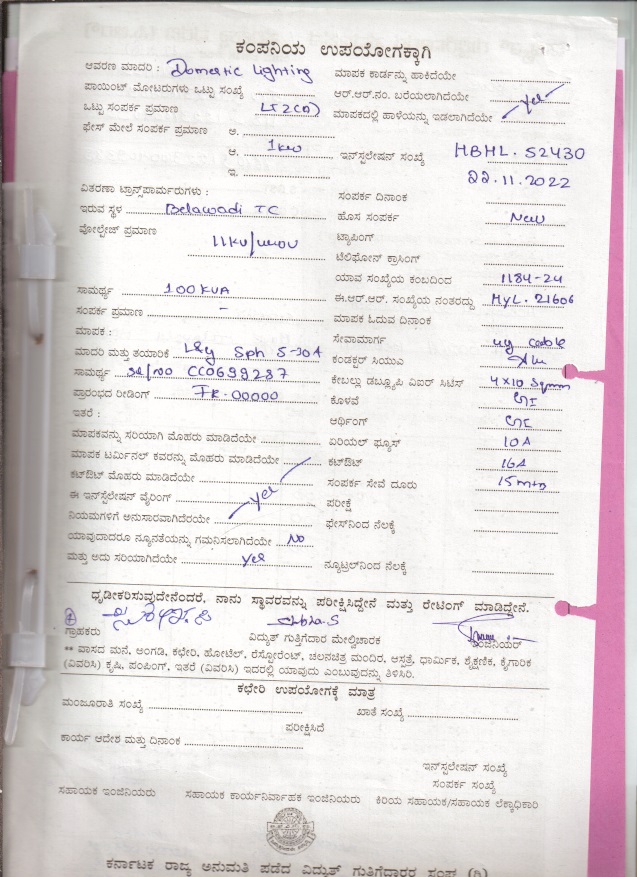 ಕಂಪನಿಯ ಉಪಯೋಗಕ್ಕಾಗಿ
ಆವರಣ ಮಾದರಿ : Domestic Lighting
ಪಾಯಿಂಟ್ ಮೋಟರುಗಳು ಒಟ್ಟು ಸಂಖ್ಯೆ
ಒಟ್ಟು ಸಂಪರ್ಕ ಪ್ರಮಾಣ LT2(a)
ಫೇಸ್ ಮೇಲೆ ಸಂಪರ್ಕ ಪ್ರಮಾಣ ಅ.
ಆ. 1kw
ಇ.
ಮಾಪಕ ಕಾರ್ಡನ್ನು ಹಾಕಿದೆಯೇ
ಆರ್.ಆರ್.ನಂ. ಬರೆಯಲಾಗಿದೆಯೇ
ಮಾಪಕದಲ್ಲಿ ಹಾಳೆಯನ್ನು ಇಡಲಾಗಿದೆಯೇ yes
ಇನ್‌ಸ್ಟಲೇಷನ್ ಸಂಖ್ಯೆ HBHL. 52430
22.11.2022
ವಿತರಣಾ ಟ್ರಾನ್ಸ್‌ಪಾರ್ಮರುಗಳು :
ಇರುವ ಸ್ಥಳ Belawadi TC
ವೋಲ್ಟೇಜ್ ಪ್ರಮಾಣ 11kv/440V
ಸಾಮರ್ಥ್ಯ 100 KVA
ಸಂಪರ್ಕ ಪ್ರಮಾಣ -
ಮಾಪಕ :
ಮಾದರಿ ಮತ್ತು ತಯಾರಿಕೆ L&y Sph 5-30A
ಸಾಮರ್ಥ್ಯ sl/no CC0699287
ಪ್ರಾರಂಭದ ರೀಡಿಂಗ್ IR-00000
ಇತರೆ :
ಮಾಪಕವನ್ನು ಸರಿಯಾಗಿ ಮೊಹರು ಮಾಡಿದೆಯೇ
ಮಾಪಕ ಟರ್ಮಿನಲ್ ಕವರನ್ನು ಮೊಹರು ಮಾಡಿದೆಯೇ
ಕಟ್‌ಔಟ್ ಮೊಹರು ಮಾಡಿದೆಯೇ
ಈ ಇನ್‌ಸ್ಟಲೇಷನ್ ವೈರಿಂಗ್ yes
ನಿಯಮಗಳಿಗೆ ಅನುಸಾರವಾಗಿದೆರಯೇ
ಯಾವುದಾದರೂ ನ್ಯೂನತೆಯನ್ನು ಗಮನಿಸಲಾಗಿದೆಯೇ No
ಮತ್ತು ಅದು ಸರಿಯಾಗಿದೆಯೇ yes
ಸಂಪರ್ಕ ದಿನಾಂಕ
ಹೊಸ ಸಂಪರ್ಕ New
ಟ್ಯಾಪಿಂಗ್
ಟೆಲಿಫೋನ್ ಕ್ರಾಸಿಂಗ್
ಯಾವ ಸಂಖ್ಯೆಯ ಕಂಬದಿಂದ 1184-24
ಈ.ಆರ್.ಆರ್. ಸಂಖ್ಯೆಯ ನಂತರದ್ದು MYL. 21606
ಮಾಪಕ ಓದುವ ದಿನಾಂಕ
ಸೇವಾಮಾರ್ಗ ug cable
ಕಂಡಕ್ಟರ್ ಸಿಯುಎ Alu
ಕೇಬಲ್ಲು ಡಬ್ಲ್ಯೂಪಿ ವಿಐರ್ ಸಿಟಿಸ್ 4x10 Sqmm
ಕೊಳವೆ GI
ಆರ್ಥಿಂಗ್ GI
ಏರಿಯಲ್ ಫ್ಯೂಸ್ 10A
ಕಟ್‌ಔಟ್ 16A
ಸಂಪರ್ಕ ಸೇವೆ ದೂರು 15mtr
ಪರೀಕ್ಷೆ
ಫೇಸ್‌ನಿಂದ ನೆಲಕ್ಕೆ
ನ್ಯೂಟ್ರಲ್‌ನಿಂದ ನೆಲಕ್ಕೆ
ಧೃಡೀಕರಿಸುವುದೇನೆಂದರೆ, ನಾನು ಸ್ಥಾವರವನ್ನು ಪರೀಕ್ಷಿಸಿದ್ದೇನೆ ಮತ್ತು ರೇಟಿಂಗ್ ಮಾಡಿದ್ದೇನೆ.
ಗ್ರಾಹಕರು ವಿದ್ಯುತ್ ಗುತ್ತಿಗೆದಾರ ಮೇಲ್ವಿಚಾರಕ ಇಂಜಿನಿಯರ್
** ವಾಸದ ಮನೆ, ಅಂಗಡಿ, ಕಛೇರಿ, ಹೋಟೆಲ್, ರೆಸ್ಟೋರೆಂಟ್, ಚಲನಚಿತ್ರ ಮಂದಿರ, ಆಸ್ಪತ್ರೆ, ಧಾರ್ಮಿಕ, ಶೈಕ್ಷಣಿಕ, ಕೈಗಾರಿಕ
(ವಿವರಿಸಿ) ಕೃಷಿ, ಪಂಪಿಂಗ್, ಇತರೆ (ವಿವರಿಸಿ) ಇದರಲ್ಲಿ ಯಾವುದು ಎಂಬುವುದನ್ನು ತಿಳಿಸಿರಿ.
ಕಛೇರಿ ಉಪಯೋಗಕ್ಕೆ ಮಾತ್ರ
ಮಂಜೂರಾತಿ ಸಂಖ್ಯೆ ಖಾತೆ ಸಂಖ್ಯೆ
ಪರೀಕ್ಷಿಸಿದೆ
ಕಾರ್ಯ ಆದೇಶ ಮತ್ತು ದಿನಾಂಕ
ಇನ್‌ಸ್ಟಲೇಷನ್ ಸಂಖ್ಯೆ
ಸಂಪರ್ಕ ಸಂಖ್ಯೆ
ಸಹಾಯಕ ಇಂಜಿನಿಯರು ಸಹಾಯಕ ಕಾರ್ಯನಿರ್ವಾಹಕ ಇಂಜಿನಿಯರು ಕಿರಿಯ ಸಹಾಯಕ/ಸಹಾಯಕ ಲೆಕ್ಕಾಧಿಕಾರಿ
ಕರ್ನಾಟಕ ರಾಜ್ಯ ಅನುಮತಿ ಪಡೆದ ವಿದ್ಯುತ್ ಗುತ್ತಿಗೆದಾರರ ಸಂಘ (ರಿ)